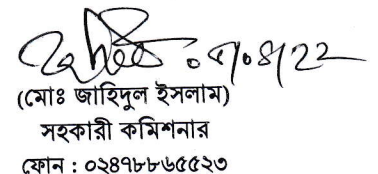 (মোঃ জাহিদুল ইসলাম)
সহকারী কমিশনার
ফোন : ০২৪৭৮৮৬৫৫২৩